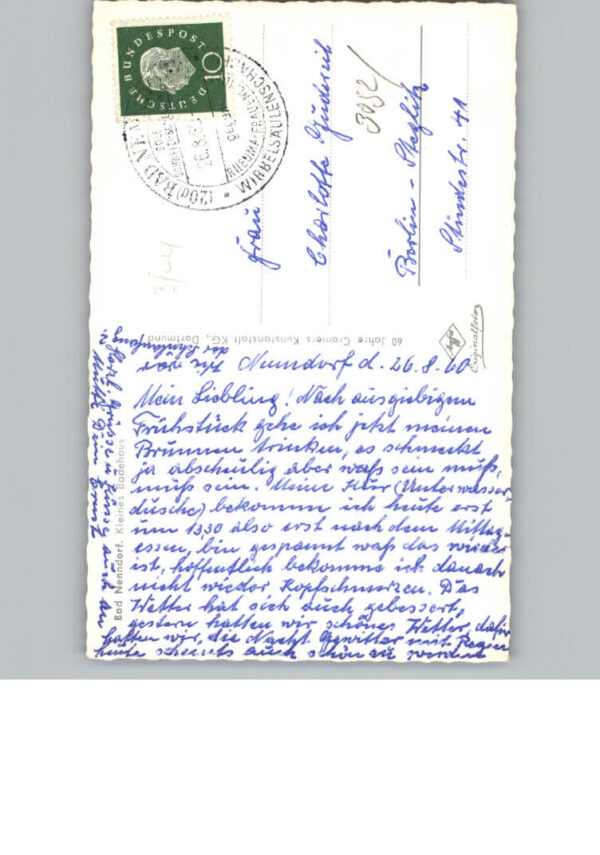 DEUTSCHE BUNDESPOST
10
(20a) BAD NE
26.8.6
RHEUMA-FRAUEN
WIRBELSÄULENSCHÄ
3052/
Frau
Charlotte Gudereit
Berlin-Steglitz
Stindestr. 41
3/44
60 Jahre Cramers Kunstanstalt KG., Dortmund
Agfa
Originalfoto
Bad Nenndorf. Kleines Badehaus
Nenndorf d. 26.8.60
Mein Liebling! Nach ausgiebigem
Frühstück gehe ich jetzt meinen
Brunnen trinken, es schmeckt
ja abscheulig aber waß sein muß,
muß sein. Meine Kur (Unterwasser-
dusche) bekomme ich heute erst
um 1330 also erst nach dem Mittag-
essen, bin gespannt waß das wieder
ist, hoffentlich bekomme ich danach
nicht wieder Kopfschmerzen. Das
Wetter hat sich auch gebessert,
gestern hatten wir schönes Wetter, dafür
hatten wir, die Nacht Gewitter mit Regen
heute scheints auch schön zu werden
Herzl. Grüsse u. Küsse auch an
Mutti Dein Ernst
wie war
der Schulanfang
?